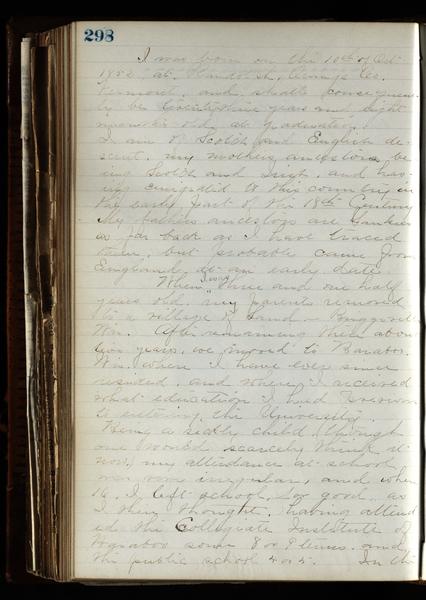 298
I was born on the 10th of Oct.
1852, at Randolph, Orange Co.
Vermont, and shall consequent-
ly be twenty nine years and eight
months old at graduation.
I am of Scotch and English de-
scent, my mothers ancestors be-
ing Scotch and Irish, and hav-
ing emigrated to this country in
the early part of the 18th Century
My fathers ancestors are Yankees
as far back as I have traced
them, but probable came from
England at an early date.
When I was three and one half
years old, my parents removed
to a village of Sand
Wis. After remaining there about
two years, we moved to Baraboo,
Wis. where I have ever since
resided, and where I received
what education I had previous
to entering the University.
Being a sickly child (though
one would scarcely think it
now) my attendance at school
was very irregular, and when
16, I left school, for good as
I then thought, having attend
ed the Collegiate Institute of
Baraboo some 8 or 9 terms and
the public school 4 or 5. In the